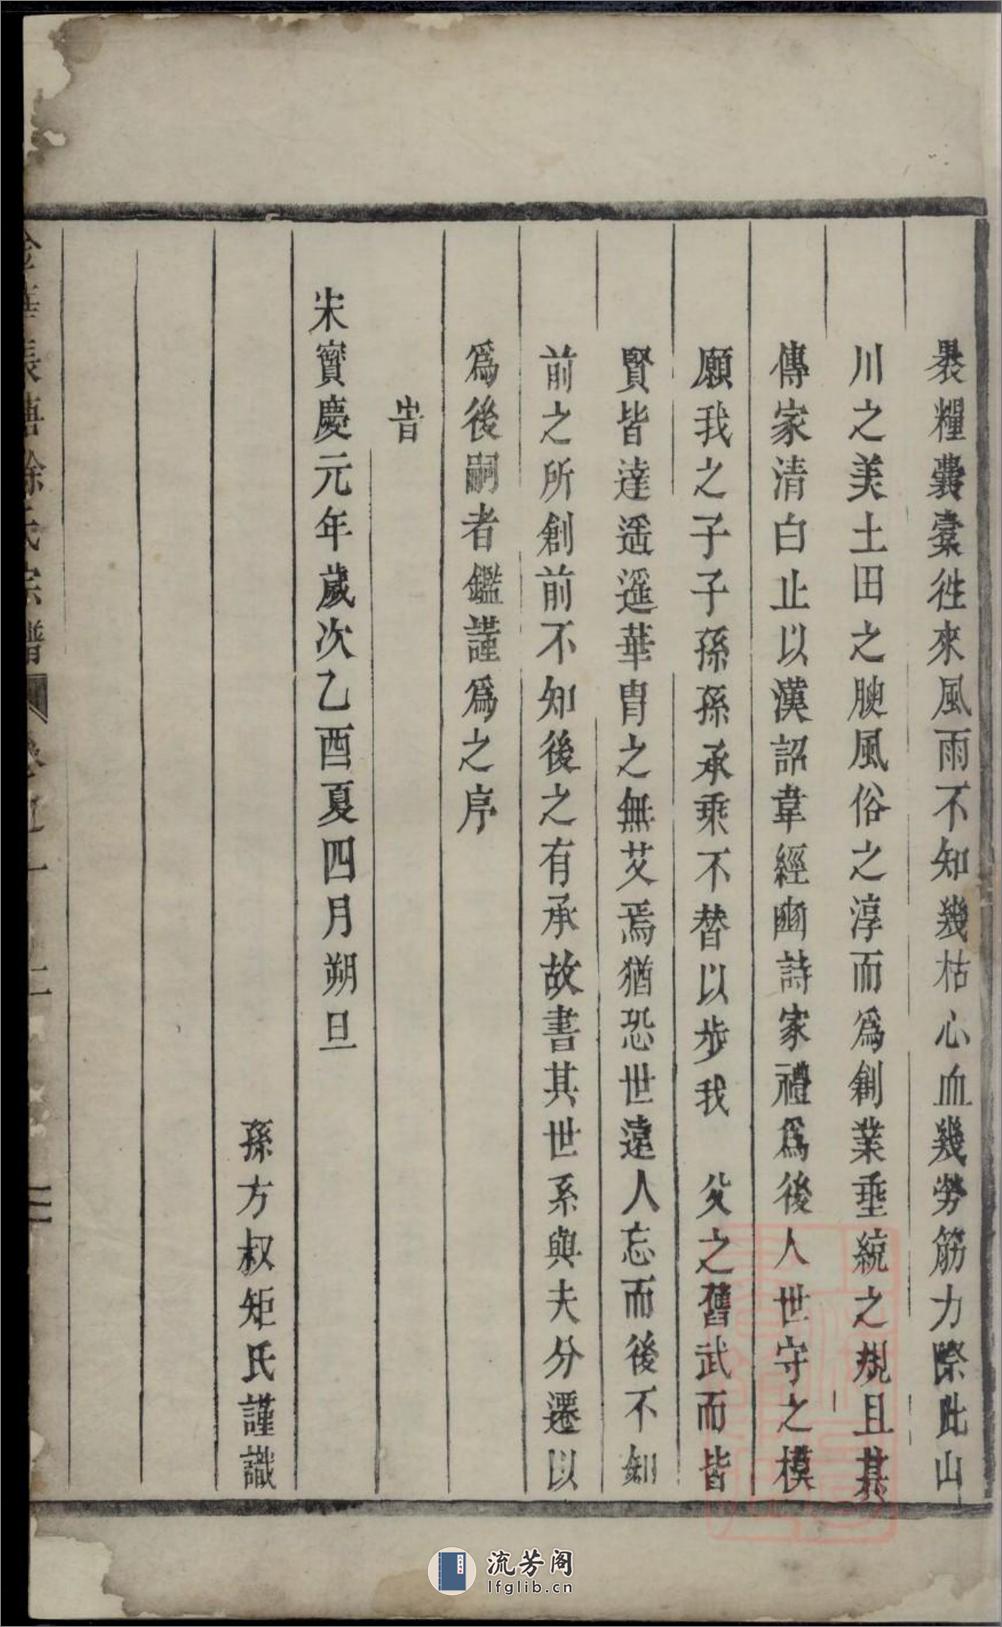 裹糧囊橐徃來風雨不知幾枯心血幾勞筋力際此山
川之美土田之腴風俗之淳而爲創業垂統之規且其
傳家清白止以漢詔韋經豳詩家禮爲後人世守之模
願我之子子孫孫承乘不替以步我　父之舊武而皆
賢皆達遥遥華胄之無艾焉猶恐世遠人忘而後不知
前之所創前不知後之有承故書其世系與夫分遷以
爲後嗣者鑑謹爲之序
旹
宋寳慶元年歲次乙酉夏四月朔旦
孫方叔矩氏謹識
徐氏宗譜
流芳阁
lfglib.cn